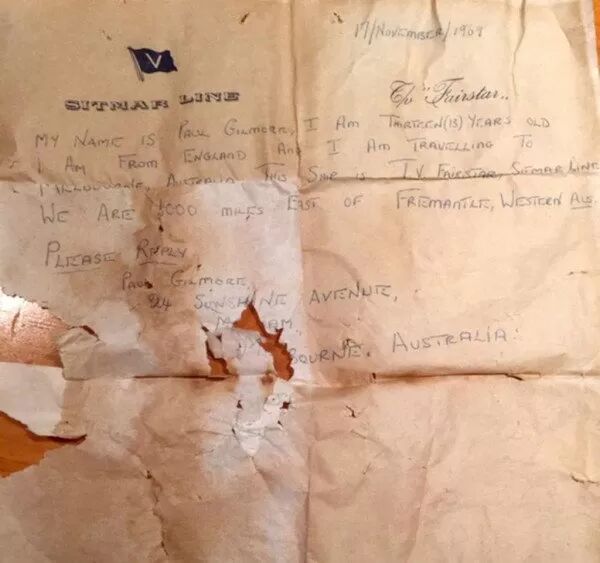 17/NOVEMBER/1969
V
SITMAR LINE
T/V "Fairstar"
MY NAME IS PAUL GILMORE, I AM THIRTEEN(13) YEARS OLD
I AM FROM ENGLAND AND I AM TRAVELLING TO
MELBOURNE, AUSTRALIA. THIS SHIP IS T.V. FAIRSTAR, SITMAR LINE
WE ARE 1000 MILES EAST OF FREMANTLE, WESTERN AUS.
PLEASE REPLY
PAUL GILMORE,
SUNSHINE AVENUE,
BOURNE, AUSTRALIA.